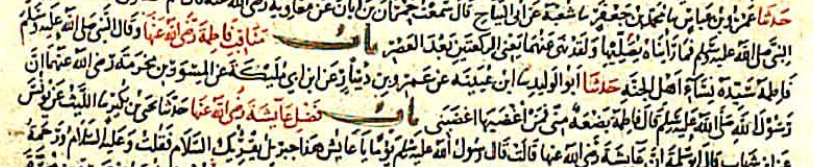 حدثنا عمرو بن عباس نا محمد بن جعفر نا شعبة عن ابى التياح قال سمعت حمران بن ابان عن معاوية رضى الله عنه
النبى صلى الله عليه وسلم فما رايناه يصليها ولقد نهى عنهما يعنى الركعتين بعد العصر باب مناقب فاطمة رضى الله عنها وقال النبى صلى الله عليه وسلم
فاطمة سيدة نساء اهل الجنة حدثنا ابو الوليد نا ابن عيينة عن عمرو بن دينار عن ابن ابى مليكة عن المسور بن مخرمة رضى الله عنهما ان
رسول الله صلى الله عليه وسلم قال فاطمة بضعة منى فمن اغضبها اغضبنى باب فضل عايشة رضى الله عنها حدثنا يحيى بن بكير نا الليث عن يونس
عن ابن شهاب قال ابو سلمة ان عايشة رضى الله عنها قالت قال رسول الله صلى الله عليه وسلم يوما يا عايش هذا جبريل يقرئك السلام فقلت وعليه السلام ورحمة